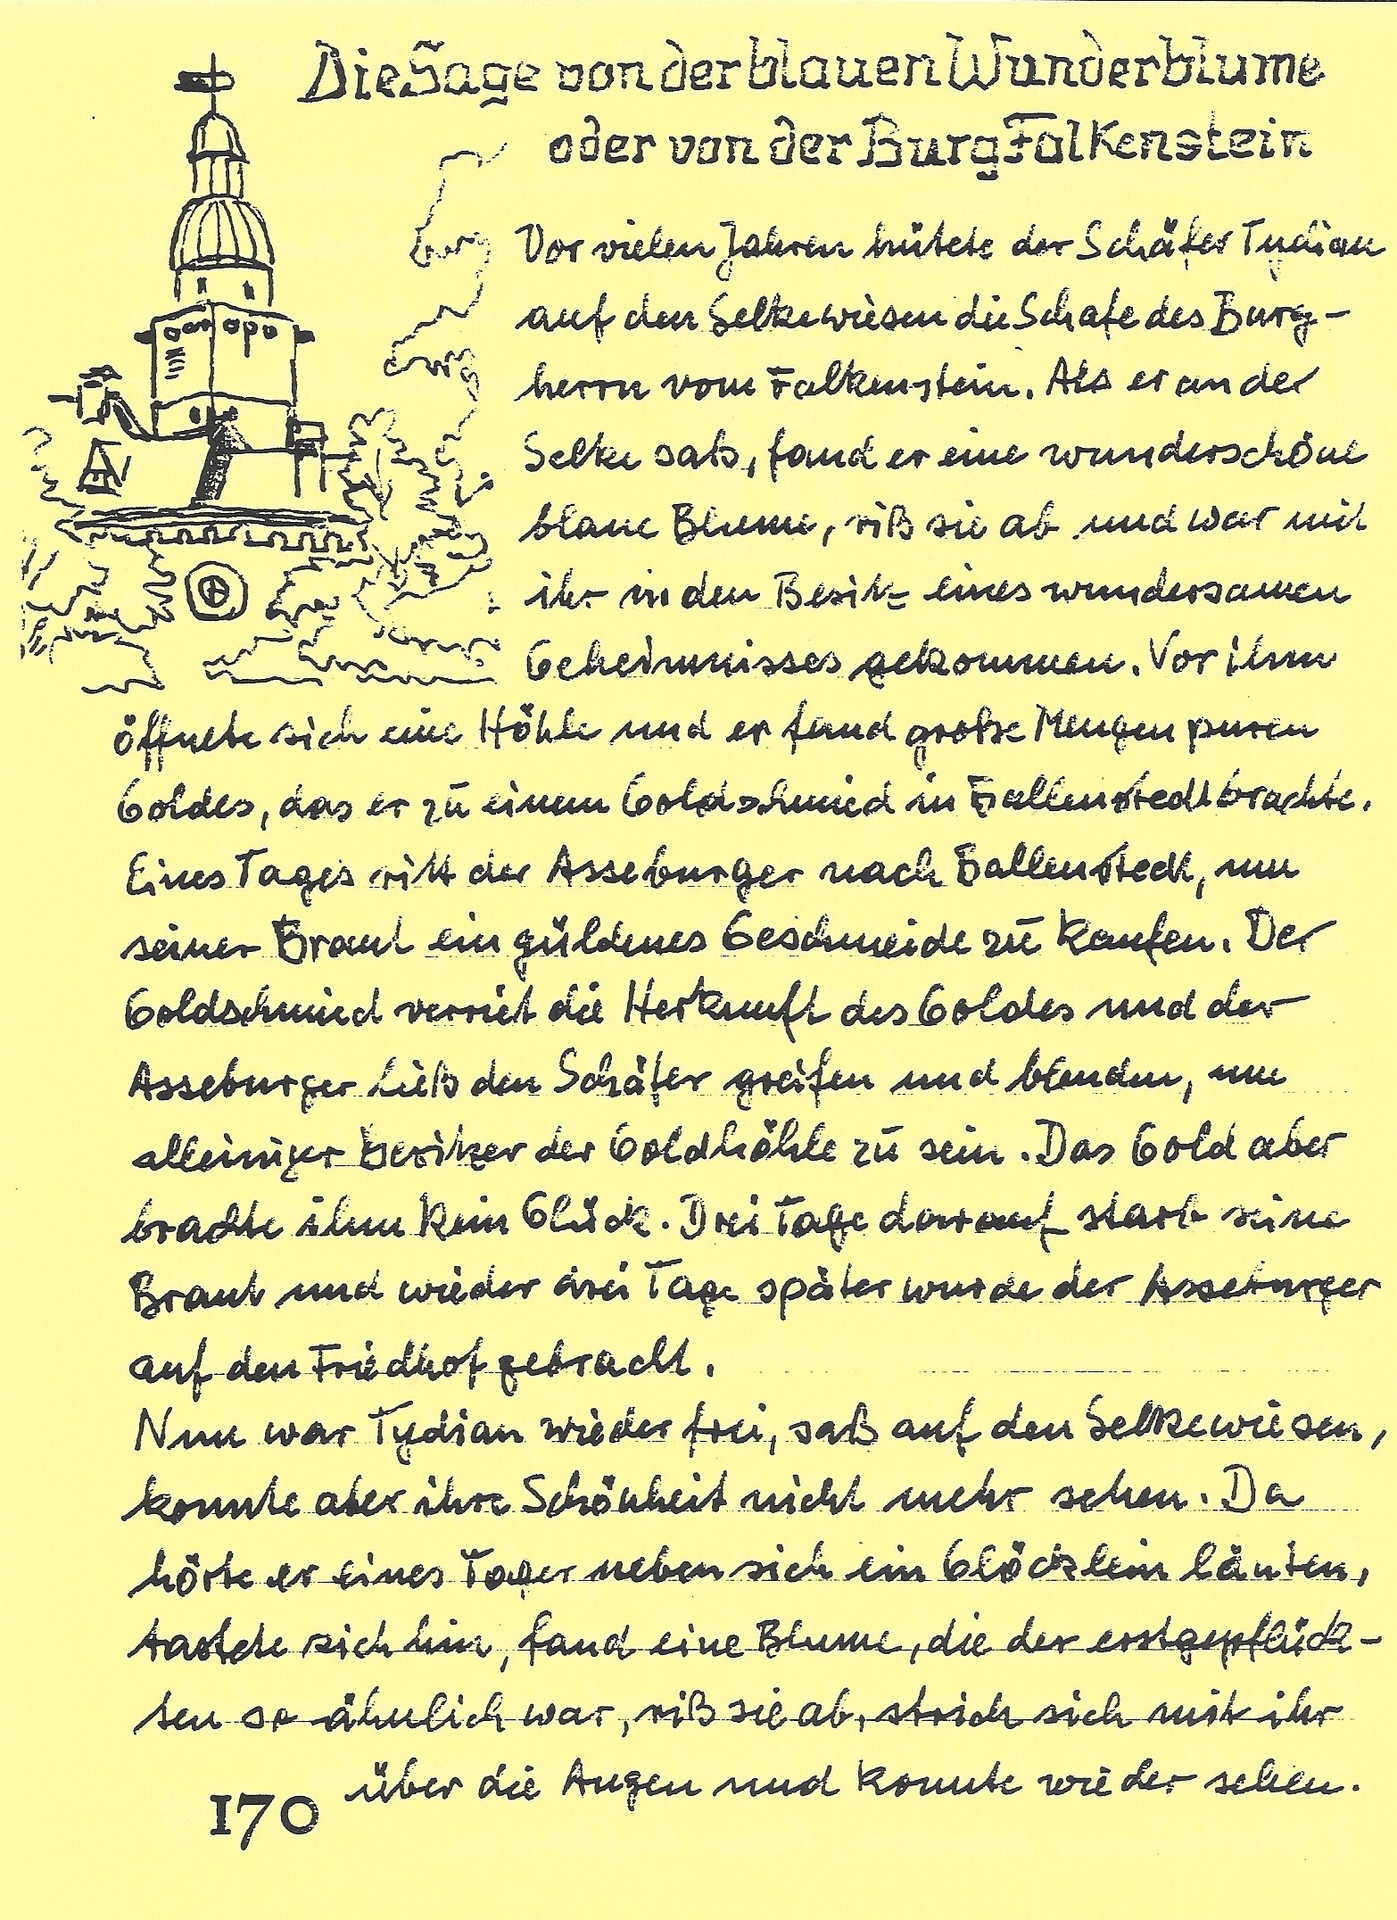 Die Sage von der blauen Wunderblume
oder von der Burg Falkenstein
Vor vielen Jahren hütete der Schäfer Tydian
auf den Selkewiesen die Schafe des Burg-
herrn vom Falkenstein. Als er an der
Selke saß, fand er eine wunderschöne
blaue Blume, riß sie ab und war mit
ihr in den Besitz eines wundersamen
Geheimnisses gekommen. Vor ihm
öffnete sich eine Höhle und er fand große Mengen puren
Goldes, das er zu einem Goldschmied in Ballenstedt brachte.
Eines Tages ritt der Asseburger nach Ballenstedt, um
seiner Braut ein güldenes Geschmeide zu kaufen. Der
Goldschmied verriet die Herkunft des Goldes und der
Asseburger ließ den Schäfer greifen und blenden, um
alleiniger Besitzer der Goldhöhle zu sein. Das Gold aber
brachte ihm kein Glück. Drei Tage darauf starb seine
Braut und wieder drei Tage später wurde der Asseburger
auf den Friedhof gebracht.
Nun war Tydian wieder frei, saß auf den Selkewiesen,
konnte aber ihre Schönheit nicht mehr sehen. Da
hörte er eines Tages neben sich ein Glöcklein läuten,
tastete sich hin, fand eine Blume, die der erstgepflück-
ten so ähnlich war, riß sie ab, strich sich mit ihr
über die Augen und konnte wieder sehen.
170